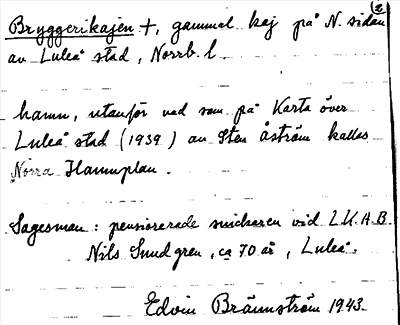 2
Bryggerikajen +, gammal kaj på N. sidan
av Luleå stad, Norrb. l.
hamn, utanför vad som på Karta över
Luleå stad (1939) av Sten Åström kallas
Norra Hamnplan.
Sagesman: pensionerade snickaren vid L.K.A.B.
Nils Sundgren, ca 70 år, Luleå.
Edvin Brännström 1943.